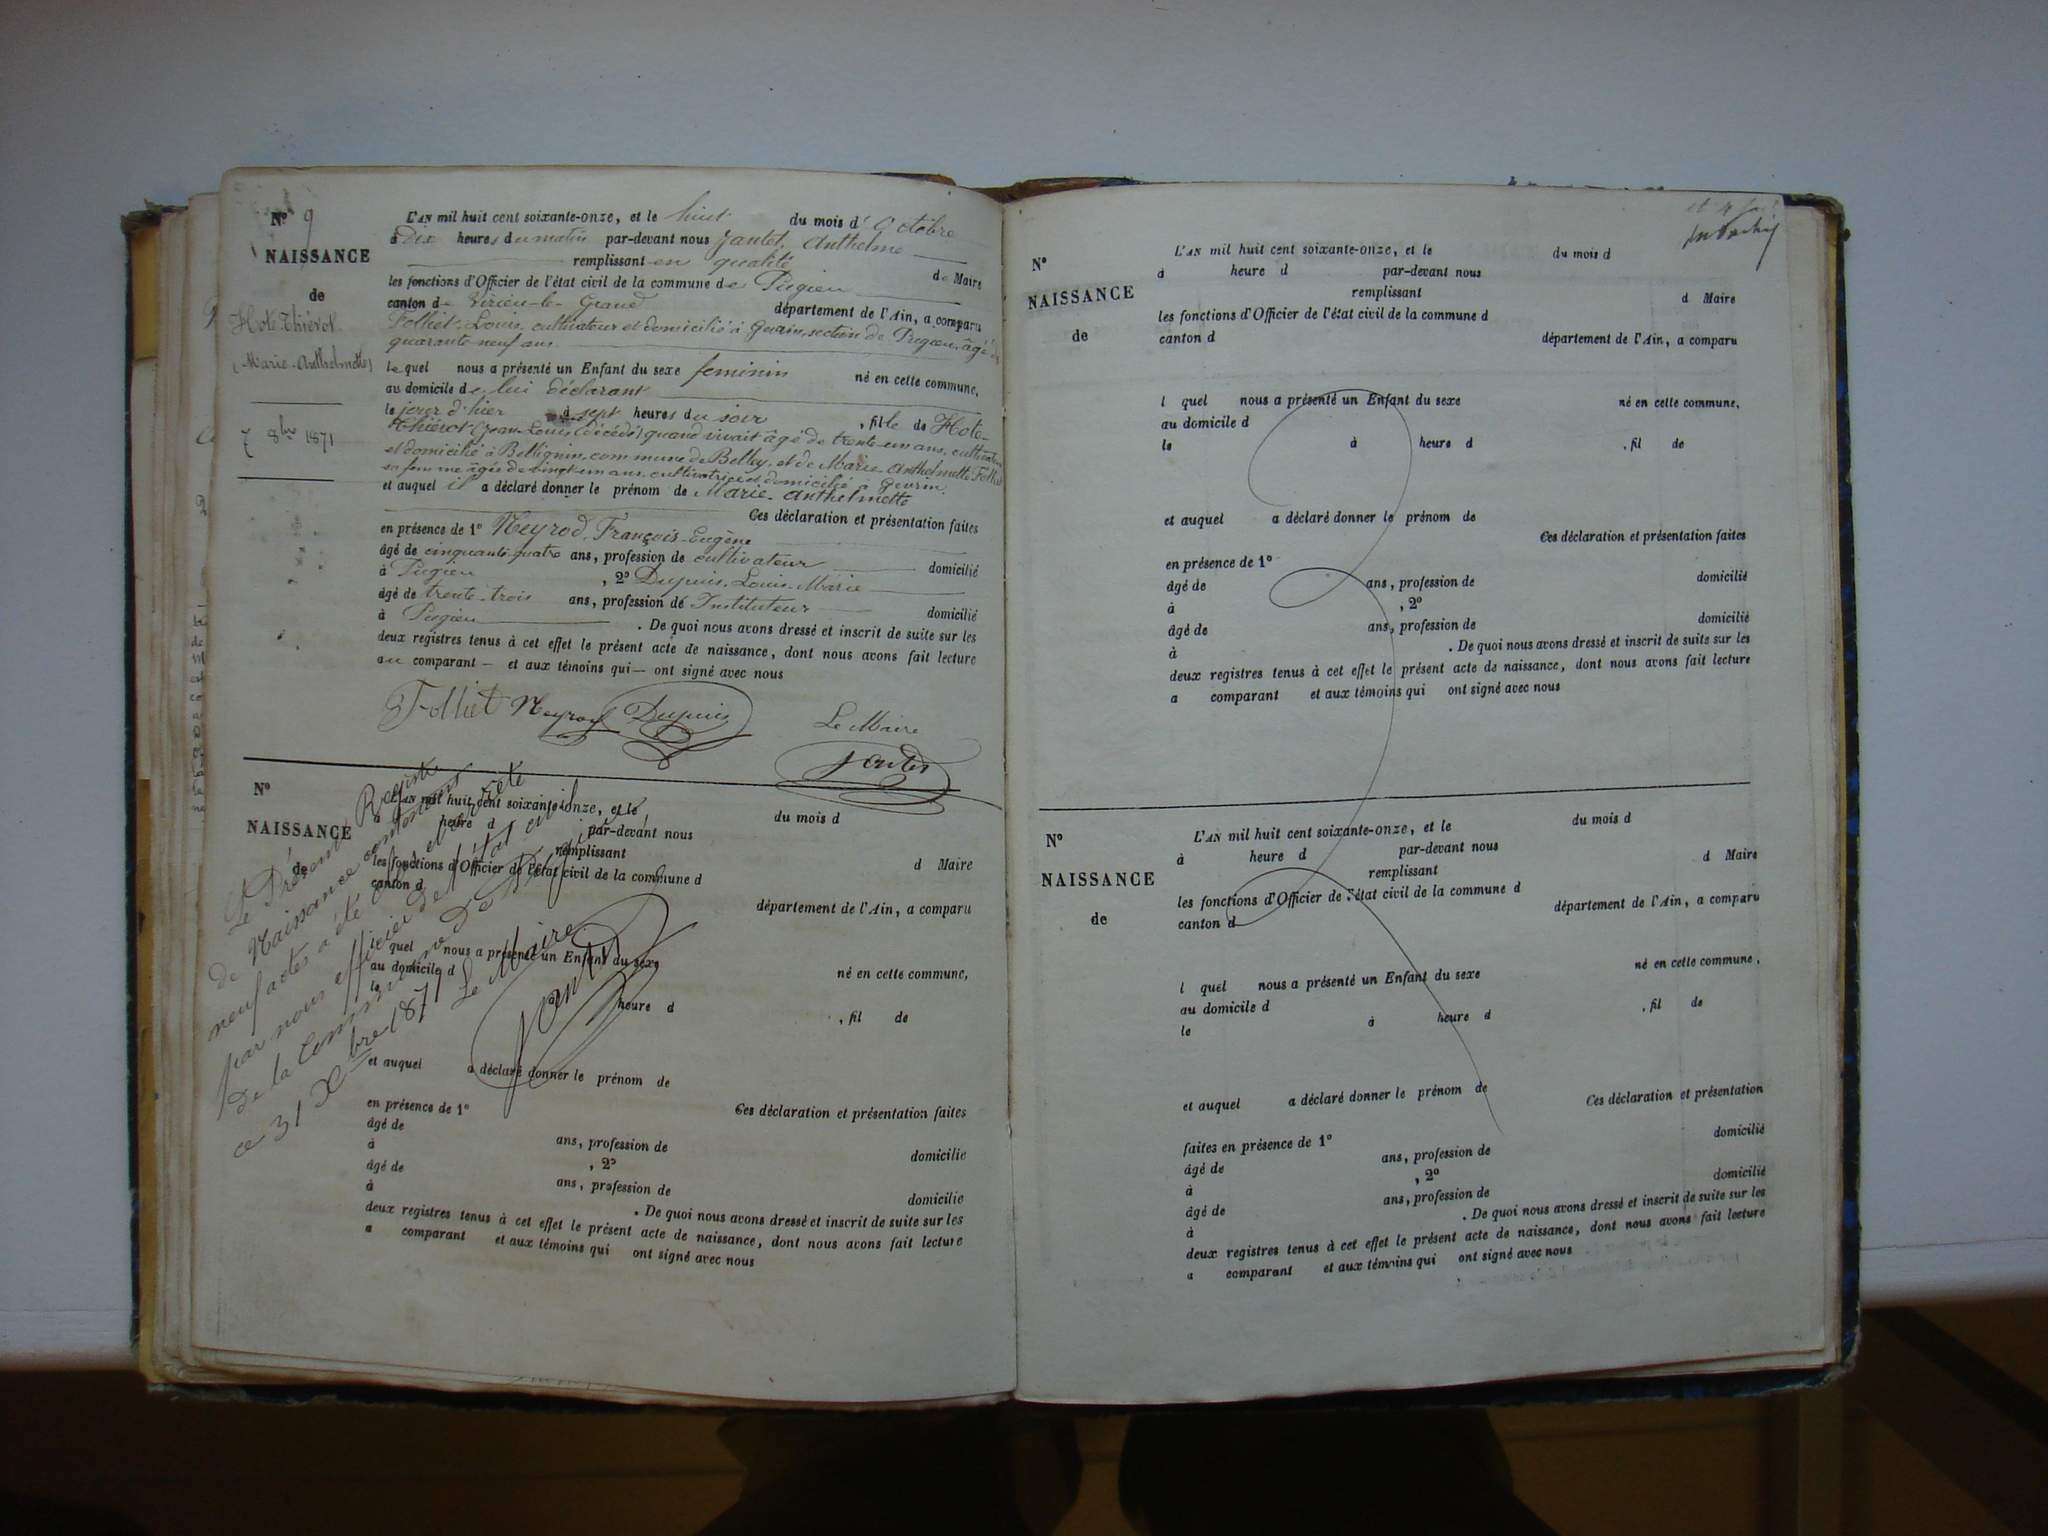 N° 9
NAISSANCE
de
Hote-Thiérot
(Marie-Anthelmette)
7 8bre 1871
L'AN mil huit cent soixante-onze, et le huit du mois d'Octobre
à Dix heures du matin par-devant nous Jantet, Anthelme
remplissant en qualité de Maire
les fonctions d'Officier de l'état civil de la commune de Pugieu
canton de Virieu-le-Grand département de l'Ain, a comparu
Folliet, Louis, cultivateur et domicilié à Gevrin, section de Pugieu, âgé de
quarante-neuf ans
lequel nous a présenté un Enfant du sexe feminin né en cette commune,
au domicile de lui déclarant
le jour d'hier à sept heures du soir, fille de Hote-
Thiérot (Jean-Louis) (décédé) quand vivait âgé de trente-un ans, cultivateur
et domicilié à Bettignin, commune de Belley, et de Marie Anthelmette Folliet
sa femme âgée de vingt-un ans, cultivatrice et domicilié à Gevrin.
et auquel il a déclaré donner le prénom de Marie-Anthelmette
Ces déclaration et présentation faites
en présence de 1° Neyrod, François-Eugène
âgé de cinquante-quatre ans, profession de cultivateur domicilié
à Pugieu, 2° Dupuis, Louis-Marie
âgé de trente-trois ans, profession de Instituteur domicilié
à Pugieu. De quoi nous avons dressé et inscrit de suite sur les
deux registres tenus à cet effet le présent acte de naissance, dont nous avons fait lecture
au comparant — et aux témoins qui — ont signé avec nous
Folliet Neyrod Dupuis Le Maire
Jantet
N°
NAISSANCE
de
L'AN mil huit cent soixante-onze, et le du mois d
à heure d par-devant nous
remplissant d Maire
les fonctions d'Officier de l'état civil de la commune d
canton d département de l'Ain, a comparu
l quel nous a présenté un Enfant du sexe né en cette commune,
au domicile d
le heure d , fil de
et auquel a déclaré donner le prénom de
Ces déclaration et présentation faites
en présence de 1°
âgé de ans, profession de domicilié
à , 2°
âgé de ans, profession de domicilié
à . De quoi nous avons dressé et inscrit de suite sur les
deux registres tenus à cet effet le présent acte de naissance, dont nous avons fait lecture
a comparant et aux témoins qui ont signé avec nous
Le Présent Registre
de Naissance contenant
neuf actes a été clos et arrêté
par nous officier de l'état civil
de la Commune de Pugieu
ce 31 Xbre 1871 Le Maire
Jantet
N°
NAISSANCE
de
L'AN mil huit cent soixante-onze, et le du mois d
à heure d par-devant nous
remplissant d Maire
les fonctions d'Officier de l'état civil de la commune d
canton d département de l'Ain, a comparu
l quel nous a présenté un Enfant du sexe né en cette commune,
au domicile d
le à heure d , fil de
et auquel a déclaré donner le prénom de
Ces déclaration et présentation faites
en présence de 1°
âgé de ans, profession de domicilié
à , 2°
âgé de ans, profession de domicilié
à . De quoi nous avons dressé et inscrit de suite sur les
deux registres tenus à cet effet le présent acte de naissance, dont nous avons fait lecture
a comparant et aux témoins qui ont signé avec nous
N°
NAISSANCE
de
L'AN mil huit cent soixante-onze, et le du mois d
à heure d par-devant nous
remplissant d Maire
les fonctions d'Officier de l'état civil de la commune d
canton d département de l'Ain, a comparu
l quel nous a présenté un Enfant du sexe né en cette commune,
au domicile d
le à heure d , fil de
et auquel a déclaré donner le prénom de
Ces déclaration et présentation
faites en présence de 1°
âgé de ans, profession de domicilié
à , 2°
âgé de ans, profession de domicilié
à . De quoi nous avons dressé et inscrit de suite sur les
deux registres tenus à cet effet le présent acte de naissance, dont nous avons fait lecture
a comparant et aux témoins qui ont signé avec nous